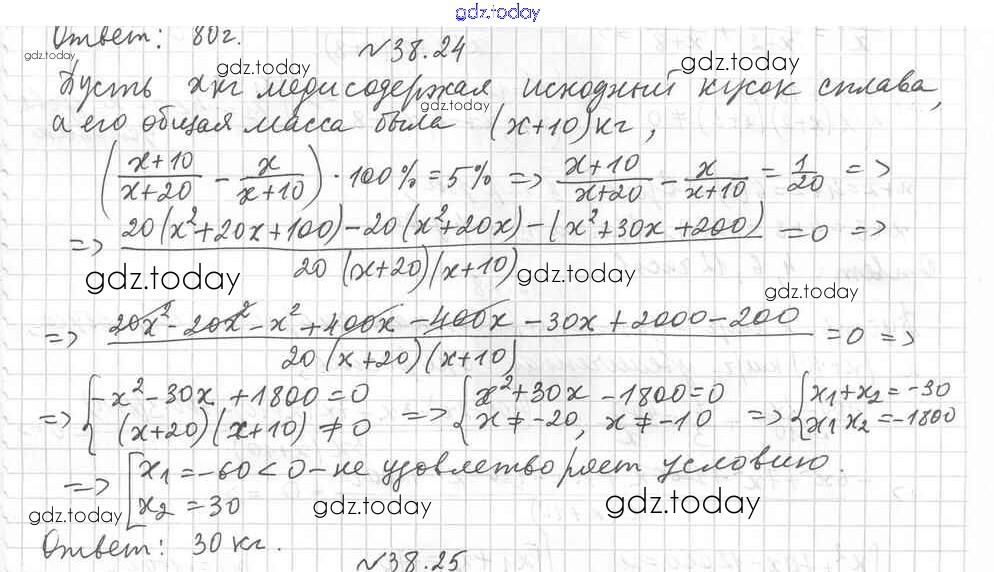 gdz.today
Ответ: 80 г.
gdz.today
№38.24
gdz.today
gdz.today
Пусть x кг меди содержал исходный кусок сплава,
gdz.today
а его общая масса была (x+10) кг,
((x+10)/(x+20) - x/(x+10)) · 100% = 5% => (x+10)/(x+20) - x/(x+10) = 1/20 =>
=> (20(x²+20x+100)-20(x²+20x)-(x²+30x+200))/(20(x+20)(x+10)) = 0 =>
gdz.today
gdz.today
gdz.today
=> (20x²-20x²-x²+400x-400x-30x+2000-200)/(20(x+20)(x+10)) = 0 =>
=> { -x²-30x+1800=0 => { x²+30x-1800=0 => { x₁+x₂=-30
(x+20)(x+10)≠0 x≠-20, x≠-10 x₁x₂=-1800
=> [ x₁=-60<0 - не удовлетворяет условию.
x₂=30
gdz.today
gdz.today
gdz.today
Ответ: 30 кг.
№38.25